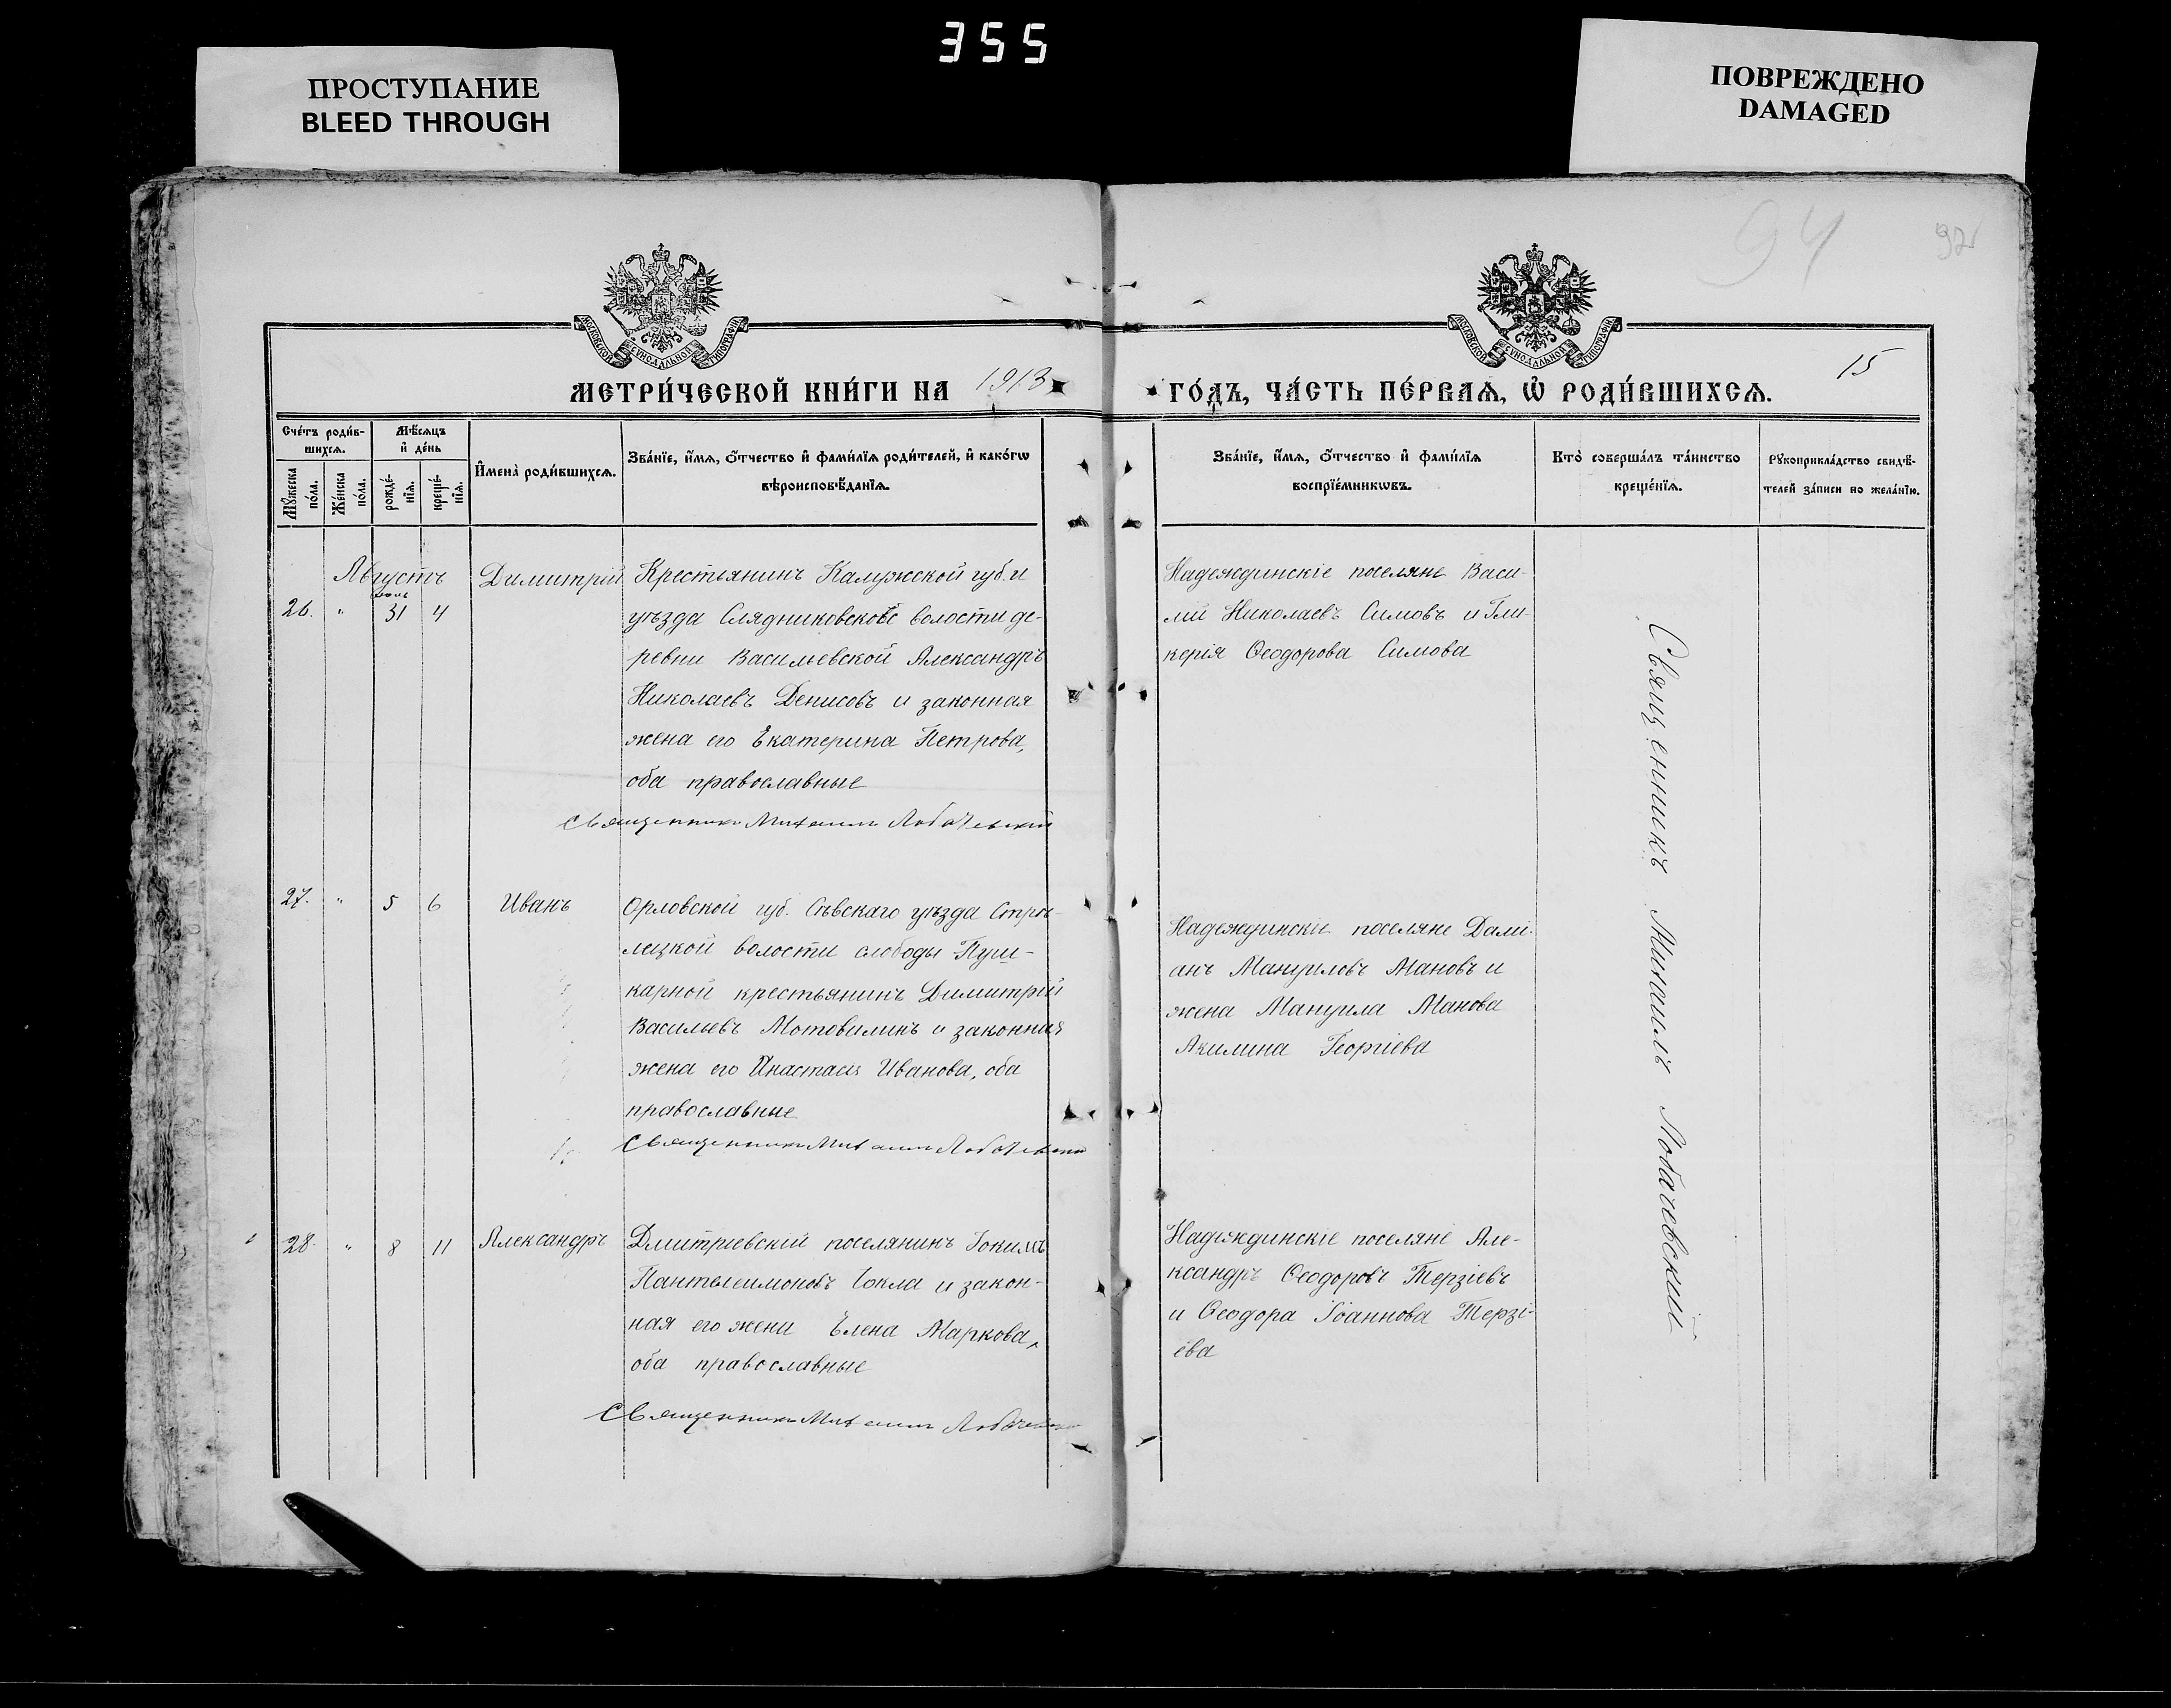 355
ПРОСТУПАНИЕ
BLEED THROUGH
ПОВРЕЖДЕНО
DAMAGED
94
МОСКОВСКОЙ СѴНОДАЛЬНОЙ ТИПОГРАФІИ
МОСКОВСКОЙ СѴНОДАЛЬНОЙ ТИПОГРАФІИ
15
МЕТРИ́ЧЕСКОЙ КНИ́ГИ НА 1913
ГО́ДЪ, ЧА́СТЬ ПЕ́РВАѦ, Ѡ҆ РОДИ́ВШИХСѦ.
Сче́тъ роди́в-
шихсѧ.
Мꙋ́жеска по́ла.
Же́нска по́ла.
Мѣ́сѧцъ
и҆ де́нь
рожде́-нїѧ.
креще́-нїѧ.
И҆мена̀ роди́вшихсѧ.
Зва́нїе, и҆́мѧ, ѻ҆́тчество и҆ фами́лїѧ роди́телей, и҆ како́гѡ
вѣроисповѣ́данїѧ.
Зва́нїе, и҆́мѧ, ѻ҆́тчество и҆ фами́лїѧ
воспрїе́мникѡвъ.
Кто̀ соверша́лъ та́инство
креще́нїѧ.
Рꙋкоприкла́дство свидѣ́-
телей за́писи по жела́нїю.
Августъ
26. " 31 4
Димитрій
Крестьянинъ Калужской губ. и
уѣзда Слядниковской волости де-
ревни Васильевской Александръ
Николаевъ Денисовъ и законная
жена его Екатерина Петрова,
оба православные
Священникъ Михаилъ Лобачевскій
Надеждинскіе поселяне Васи-
лій Николаевъ Симовъ и Гли-
керія Ѳеодорова Симова
27. " 5 6
Иванъ
Орловской губ. Сѣвскаго уѣзда Стрѣ-
лецкой волости слободы Пуш-
карной крестьянинъ Димитрій
Васильевъ Мотовилинъ и законная
жена его Анастасія Иванова, оба
православные
Священникъ Михаилъ Лобачевскій
Надеждинскіе поселяне Дамі-
анъ Мануиловъ Мановъ и
жена Мануила Манова
Акилина Георгіева
28. " 8 11
Александръ
Дмитріевскій поселянинъ Іокимъ
Пантелеимоновъ Іокла и закон-
ная его жена Елена Маркова,
оба православные
Священникъ Михаилъ Лобачевскій
Надеждинскіе поселяне Але-
ксандръ Ѳеодоровъ Терзіевъ
и Ѳеодора Іоаннова Терзі-
ева
Священникъ Михаилъ Лобачевскій